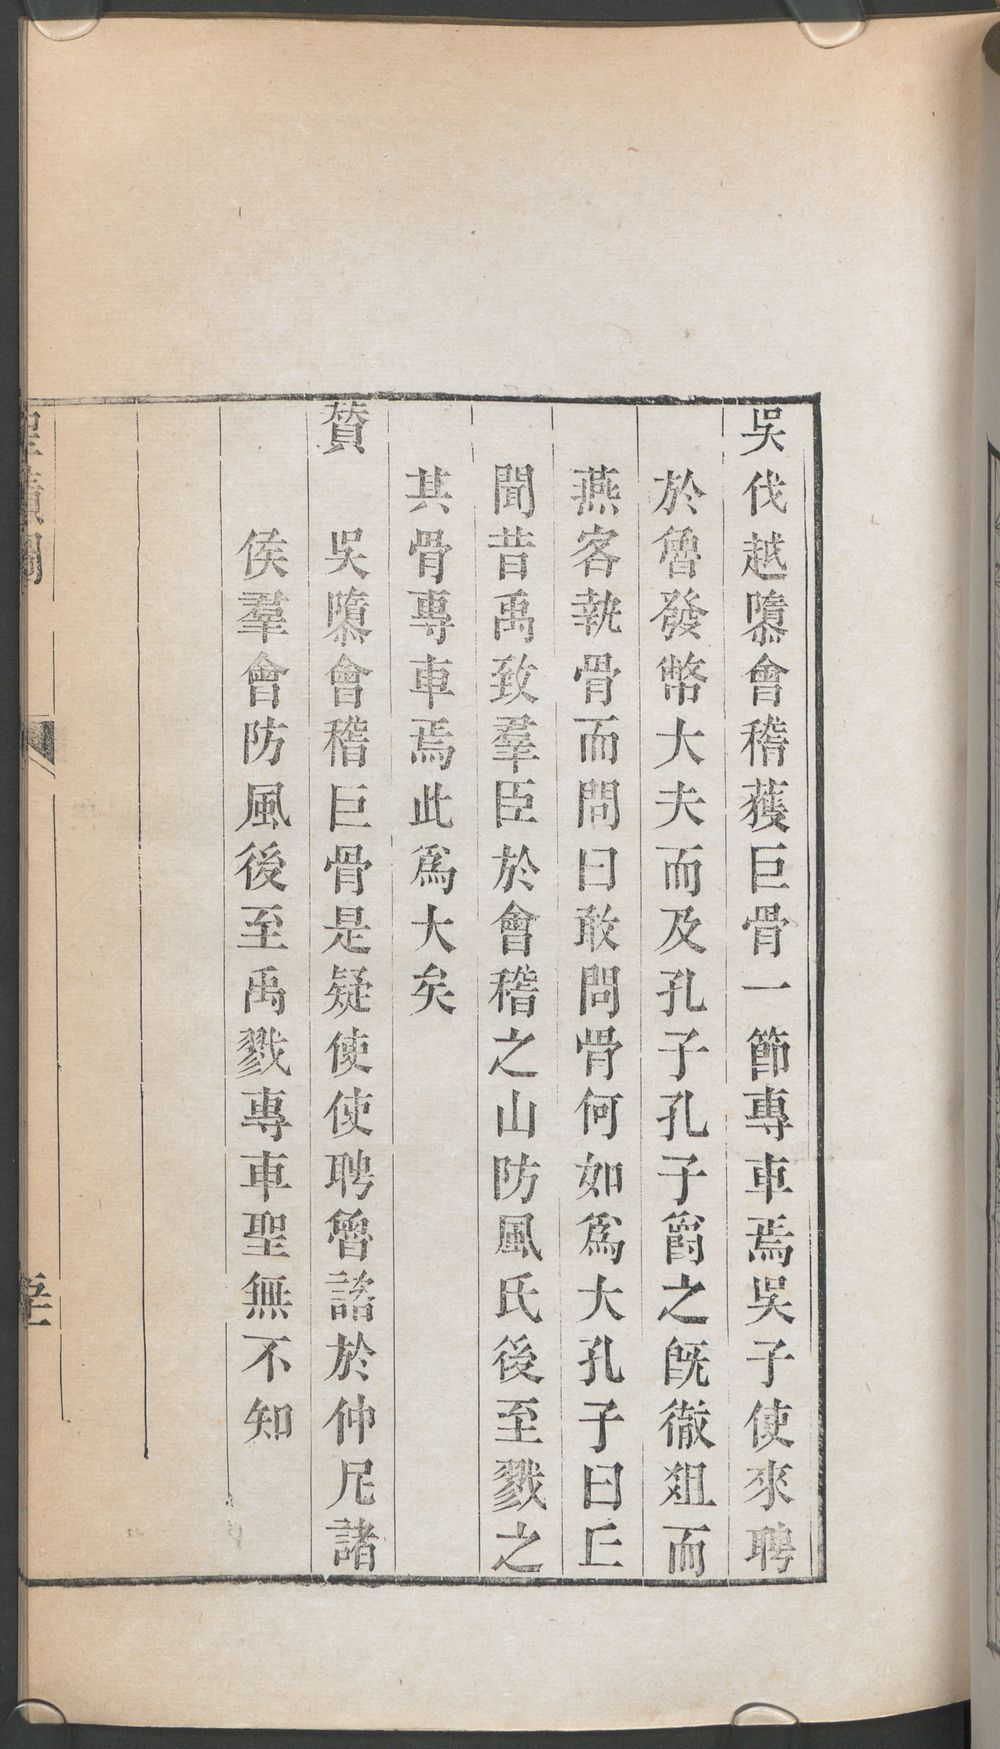 吳伐越隳會稽獲巨骨一節專車焉吳子使來聘
於魯發幣大夫而及孔子孔子爵之旣徹俎而
燕客執骨而問曰敢問骨何如爲大孔子曰丘
聞昔禹致羣臣於會稽之山防風氏後至戮之
其骨專車焉此爲大矣
贊
吳隳會稽巨骨是疑使使聘魯諮於仲尼諸
侯羣會防風後至禹戮專車聖無不知
聖蹟圖